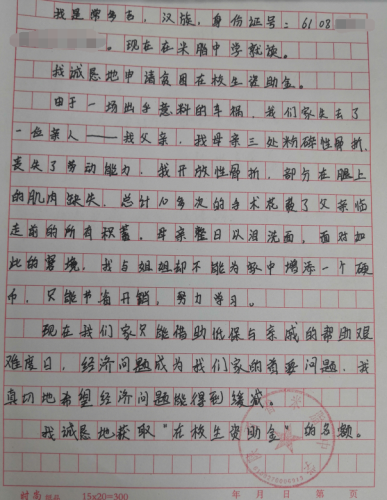 我是常多吉，汉族，身份证号：6108
。现在在米脂中学就读。
我诚恳地申请贫困在校生资助金。
由于一场出乎意料的车祸，我们家失去了
一位亲人——我父亲，我母亲三处粉碎性骨折，
丧失了劳动能力，我开放性骨折，部分在腿上
的肌肉缺失，总计10多次的手术花费了父亲临
走前的所有积蓄。母亲整日以泪洗面，面对如
此的窘境，我与姐姐却不能为家中增添一个硬
币，只能节省开销，努力学习。
现在我们家只能借助低保与亲戚的帮助艰
难度日，经济问题成为我们家的首要问题，我
真切地希望经济问题能得到缓减。
我诚恳地获取“在校生资助金”的名额。
15x20=300
年 月 日 第 页